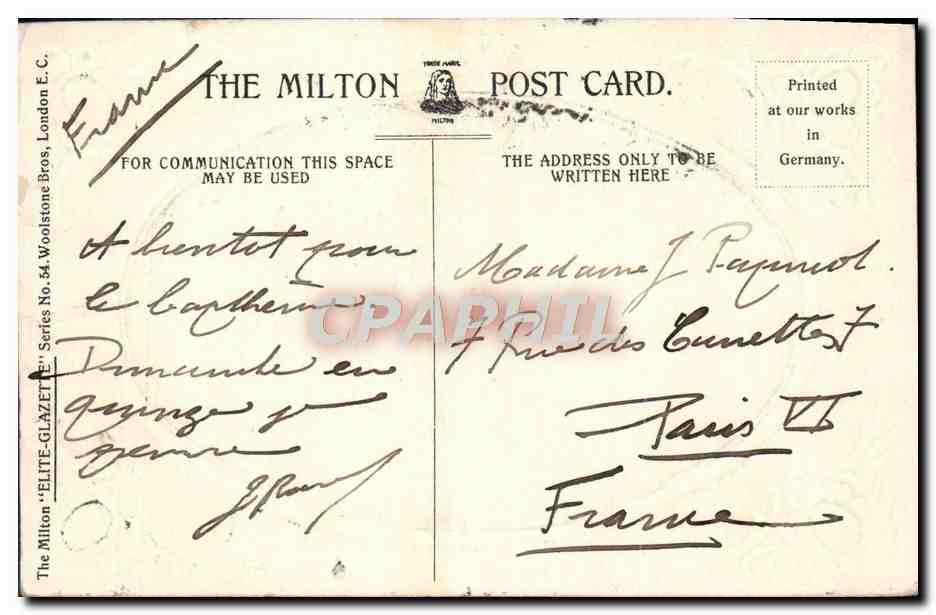 THE MILTON POST CARD.
TRADE MARK
MILTON
Printed
at our works
in
Germany.
France
FOR COMMUNICATION THIS SPACE
MAY BE USED
THE ADDRESS ONLY TO BE
WRITTEN HERE
A bientot pour
le
en
quinze je
Madame J
7 Rue des 7
Paris VI
France
CPAPHIL
The Milton "ELITE-GLAZETTE" Series No. 54. Woolstone Bros, London E.C.